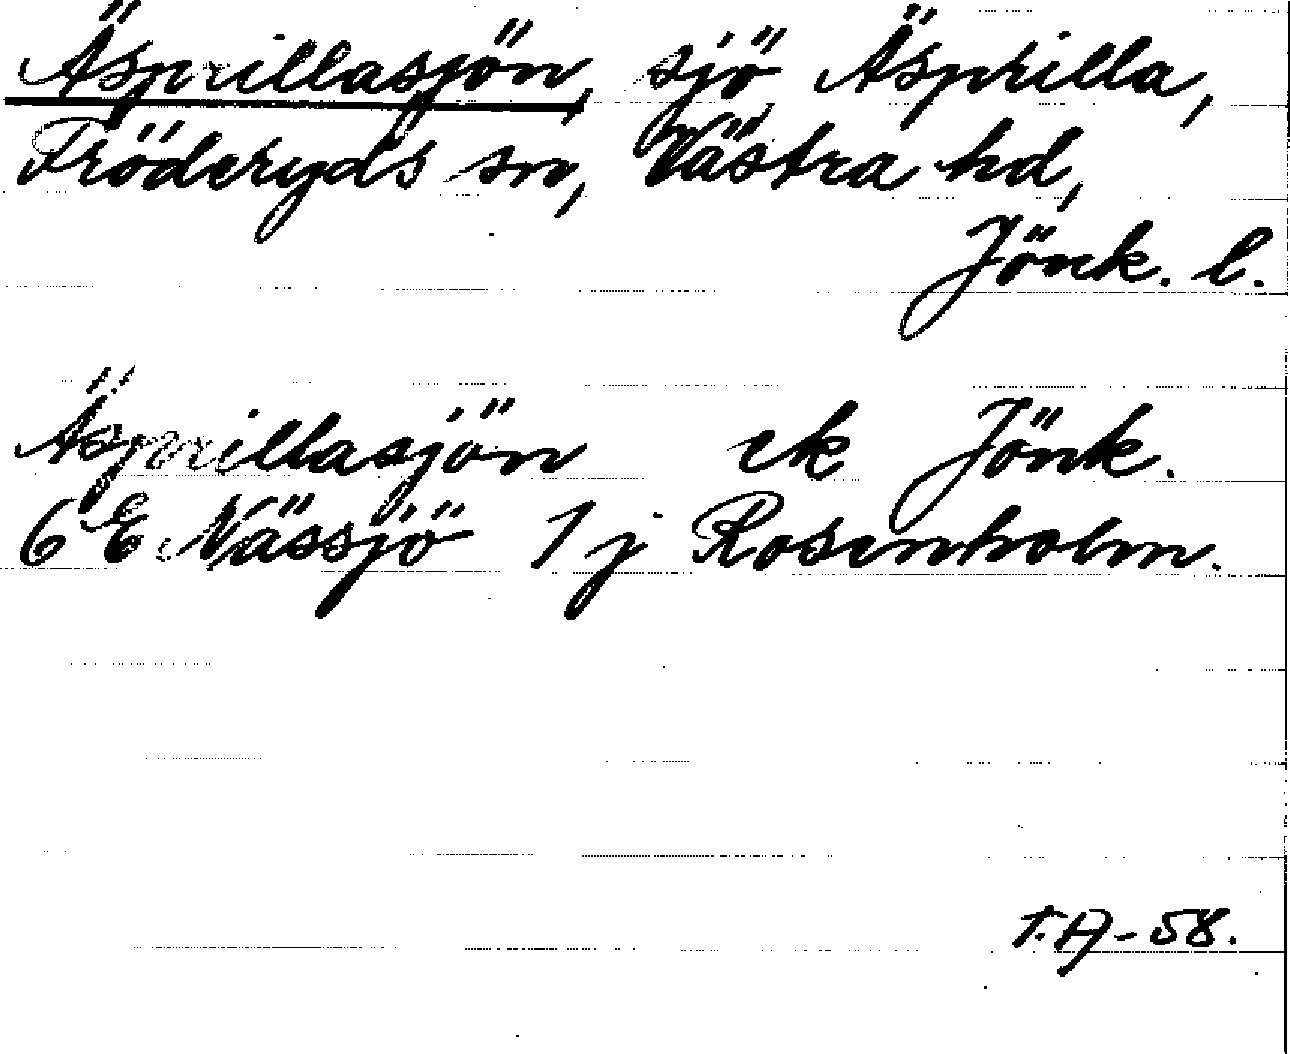 Äsprillasjön, sjö Äsprilla,
Fröderyds sn, Västra hd,
Jönk. l.
Äsprillasjön ek Jönk.
6 E Nässjö 1 j Rosenholm.
T.A-58.